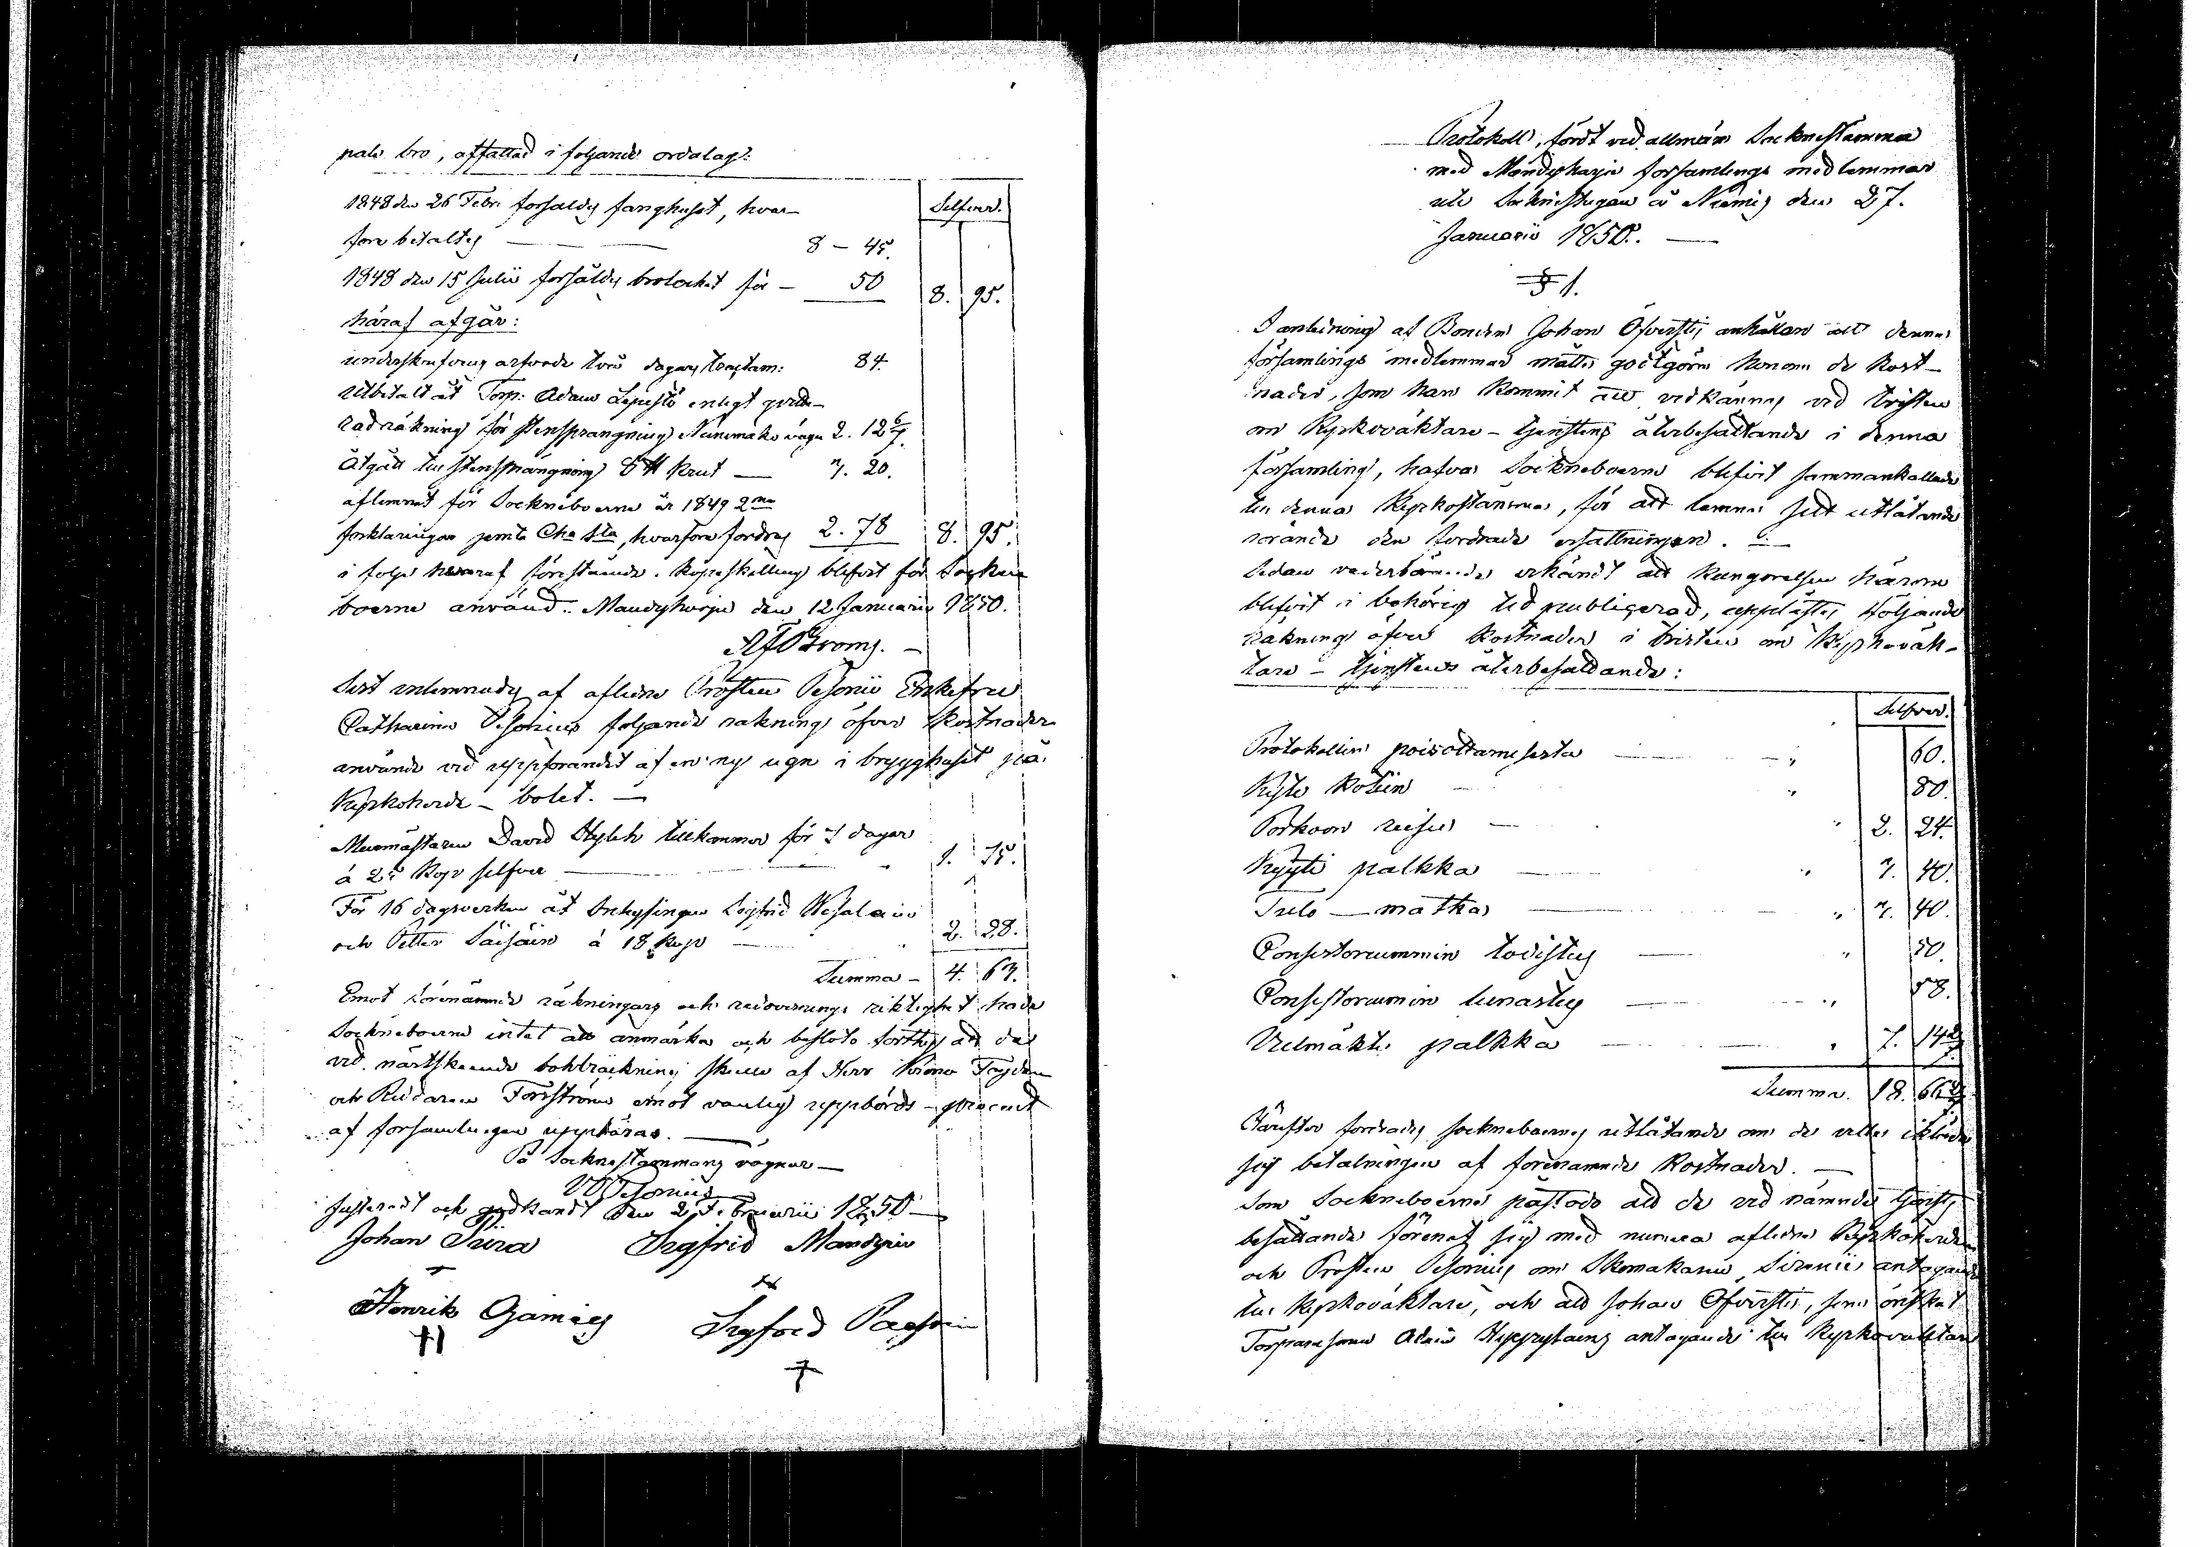 pals bro, affattad i följande ordalag:
Silfver.
1848 den 26 Febr: försåldes fånghuset, hvar-
före betaltes 8 – 45.
1848 den 15 Julii försåldes brolocket för – 50 8. 95.
häraf afgår:
underskrefvens arfvode två dagars tracktam: 84.
utbetalt åt Torp: Adam Lepistö enligt qvitte-
rad räkning för stensprängning Niinimäki vägen 2. 12 6/7.
Åtgått till stensprängning 8 ℔ krut — 3. 20.
aflemnat för Sockneboerne år 1849 2ne
förklaringar jemte Cha Sta, hvarföre fordras 2. 78 8. 95.
i följe hvaraf förestående Köpeskilling blifvit för Sockne
boerne använd. Mandyharju den 12 Januarii 1850.
A F Broms. —
Sist inlemnades af aflidne Prosten Pesonii Enkefru
Catharina Pesonius följande räkning öfver kostnader
använde vid uppförandet af en ny ugn i brygghuset på
Kyrkoherde-bolet. —
Murmästaren David Hyleh tillkommer för 7 dagar
à 25 Kop silfver 1. 75.
För 16 dagsverken åt Inhysingen Sigfrid Wesalain
och Petter Säisäin à 18 Kop 2. 88.
Summa – 4. 63.
Emot förenämnde räkningars och redovisnings riktighet hade
Sockneboerne intet att anmärka och beslöto förthy att det
vid nästskeende bokträckning skulle af Herr Krono Fogden
och Ridaren Forsström emot vanlig uppbörds-procent
af församlingen uppbäras. —
På Sockne stämmans vägnar —
Pesonius
Justeradt och godkändt den 2 Februarii 1850 —
Johan Piira Sigfrid Mandyin
Henrik Ojamies Sigfred Parsoin
Protokoll, fördt vid allmän Socknestämma
med Mändyharju församlings medlemmar
uti Socknestugan å Niämis den 27.
Januarii 1850. —
§ 1.
I anledning af Bonden Johan Öfverstis anhållan att denna
församlings medlemmar måtte godtgöra honom de kost-
nader, som han kommit att vidkännas vid tvisten
om Kyrkoväktare-tjenstens återbesättande i denna
församling, hafva Sockneboerne blifvit sammankallade
till denna Kyrkostämma, för att lemna sitt utlåtande
rörande den fordrade ersättningen. —
Sedan vederbörande erkändt att kungörelsen härom
blifvit i behörig tid publicerad, upplästes följande
räkning öfver kostnader i tvisten om Kyrkoväk-
tare-tjenstens återbesättande:
Silfver.
Protokollin poisottamisesta — „ 60.
Kyle kotiin „ 80.
Porkoon reisu — „ 2. 24.
Kyyti palkka — „ 3. 40.
Tulo — matka — „ 3. 40.
Consistoriummin todistus — „ 50.
Consistoriumin lunastus — „ 58.
Velmäkti palkka — „ 7. 14 2/7.
Summa. 18. 66 2/7.
Härefter fordrades sockneboernes utlåtande om de ville ikläda
sig betalningen af förenämnde kostnader. —
Som Sockneboerne påstodo att de vid nämnde tjensts
besättande förenat sig med numera aflidne Kyrkoherden
och Prosten Pesonius om Skomakaren Sirenii antagande
till Kyrkoväktare, och att Johan Öfversti, som önskat
Torparesonen Adam Hyyryläins antagande till Kyrkoväktare